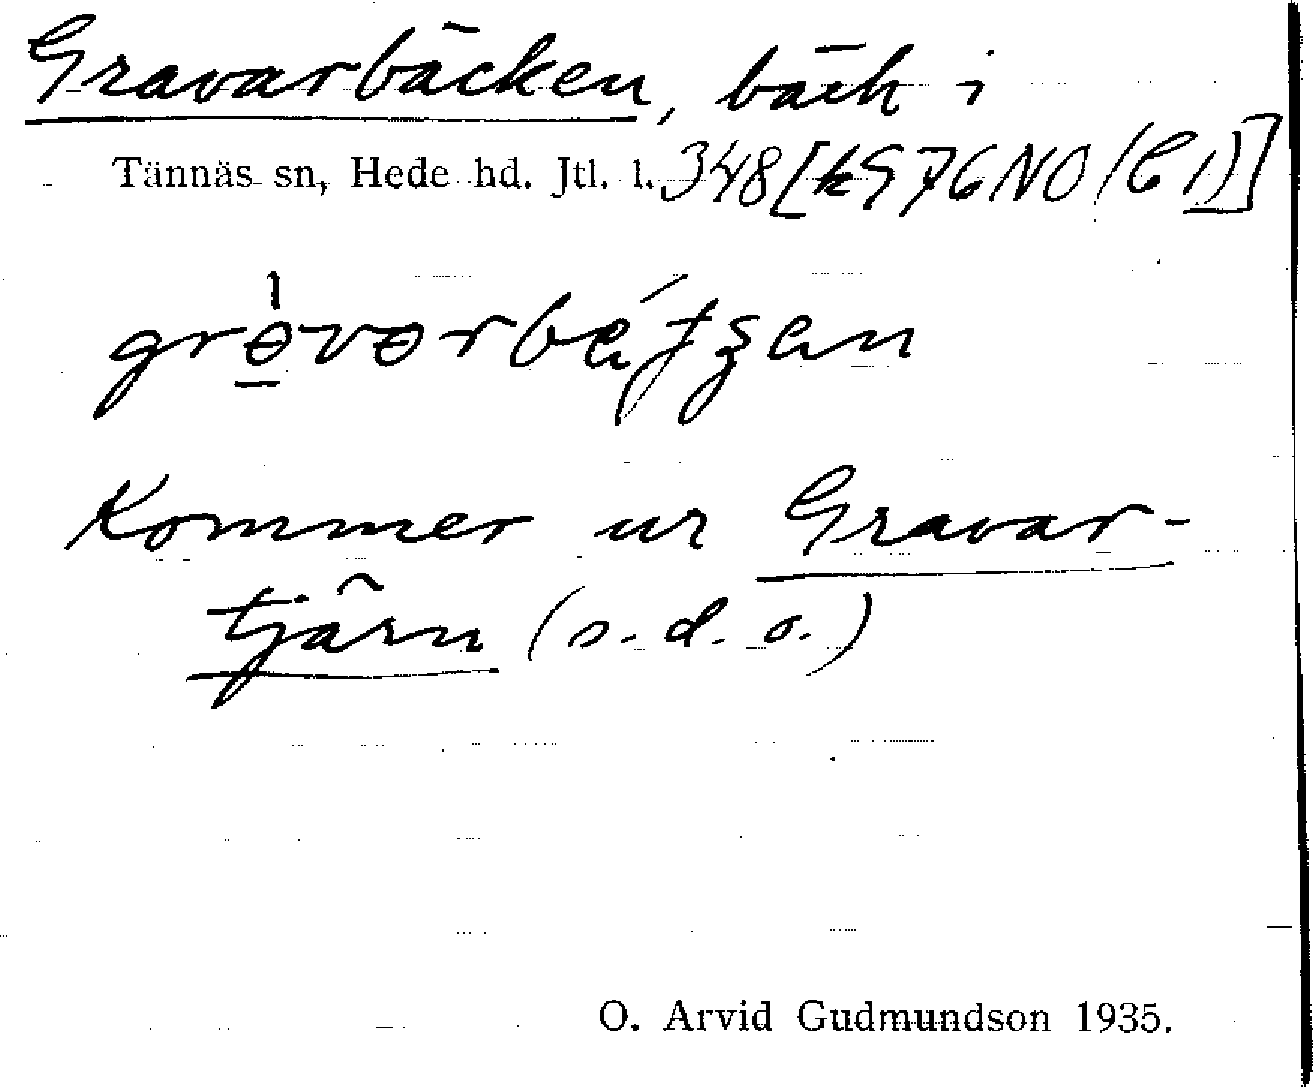 Gravarbäcken, bäck i
Tännäs sn, Hede hd. Jtl. l. 348 [k 976 NO (C1)]
Kommer ur Gravar-
tjärn (s.d.o.)
O. Arvid Gudmundson 1935.